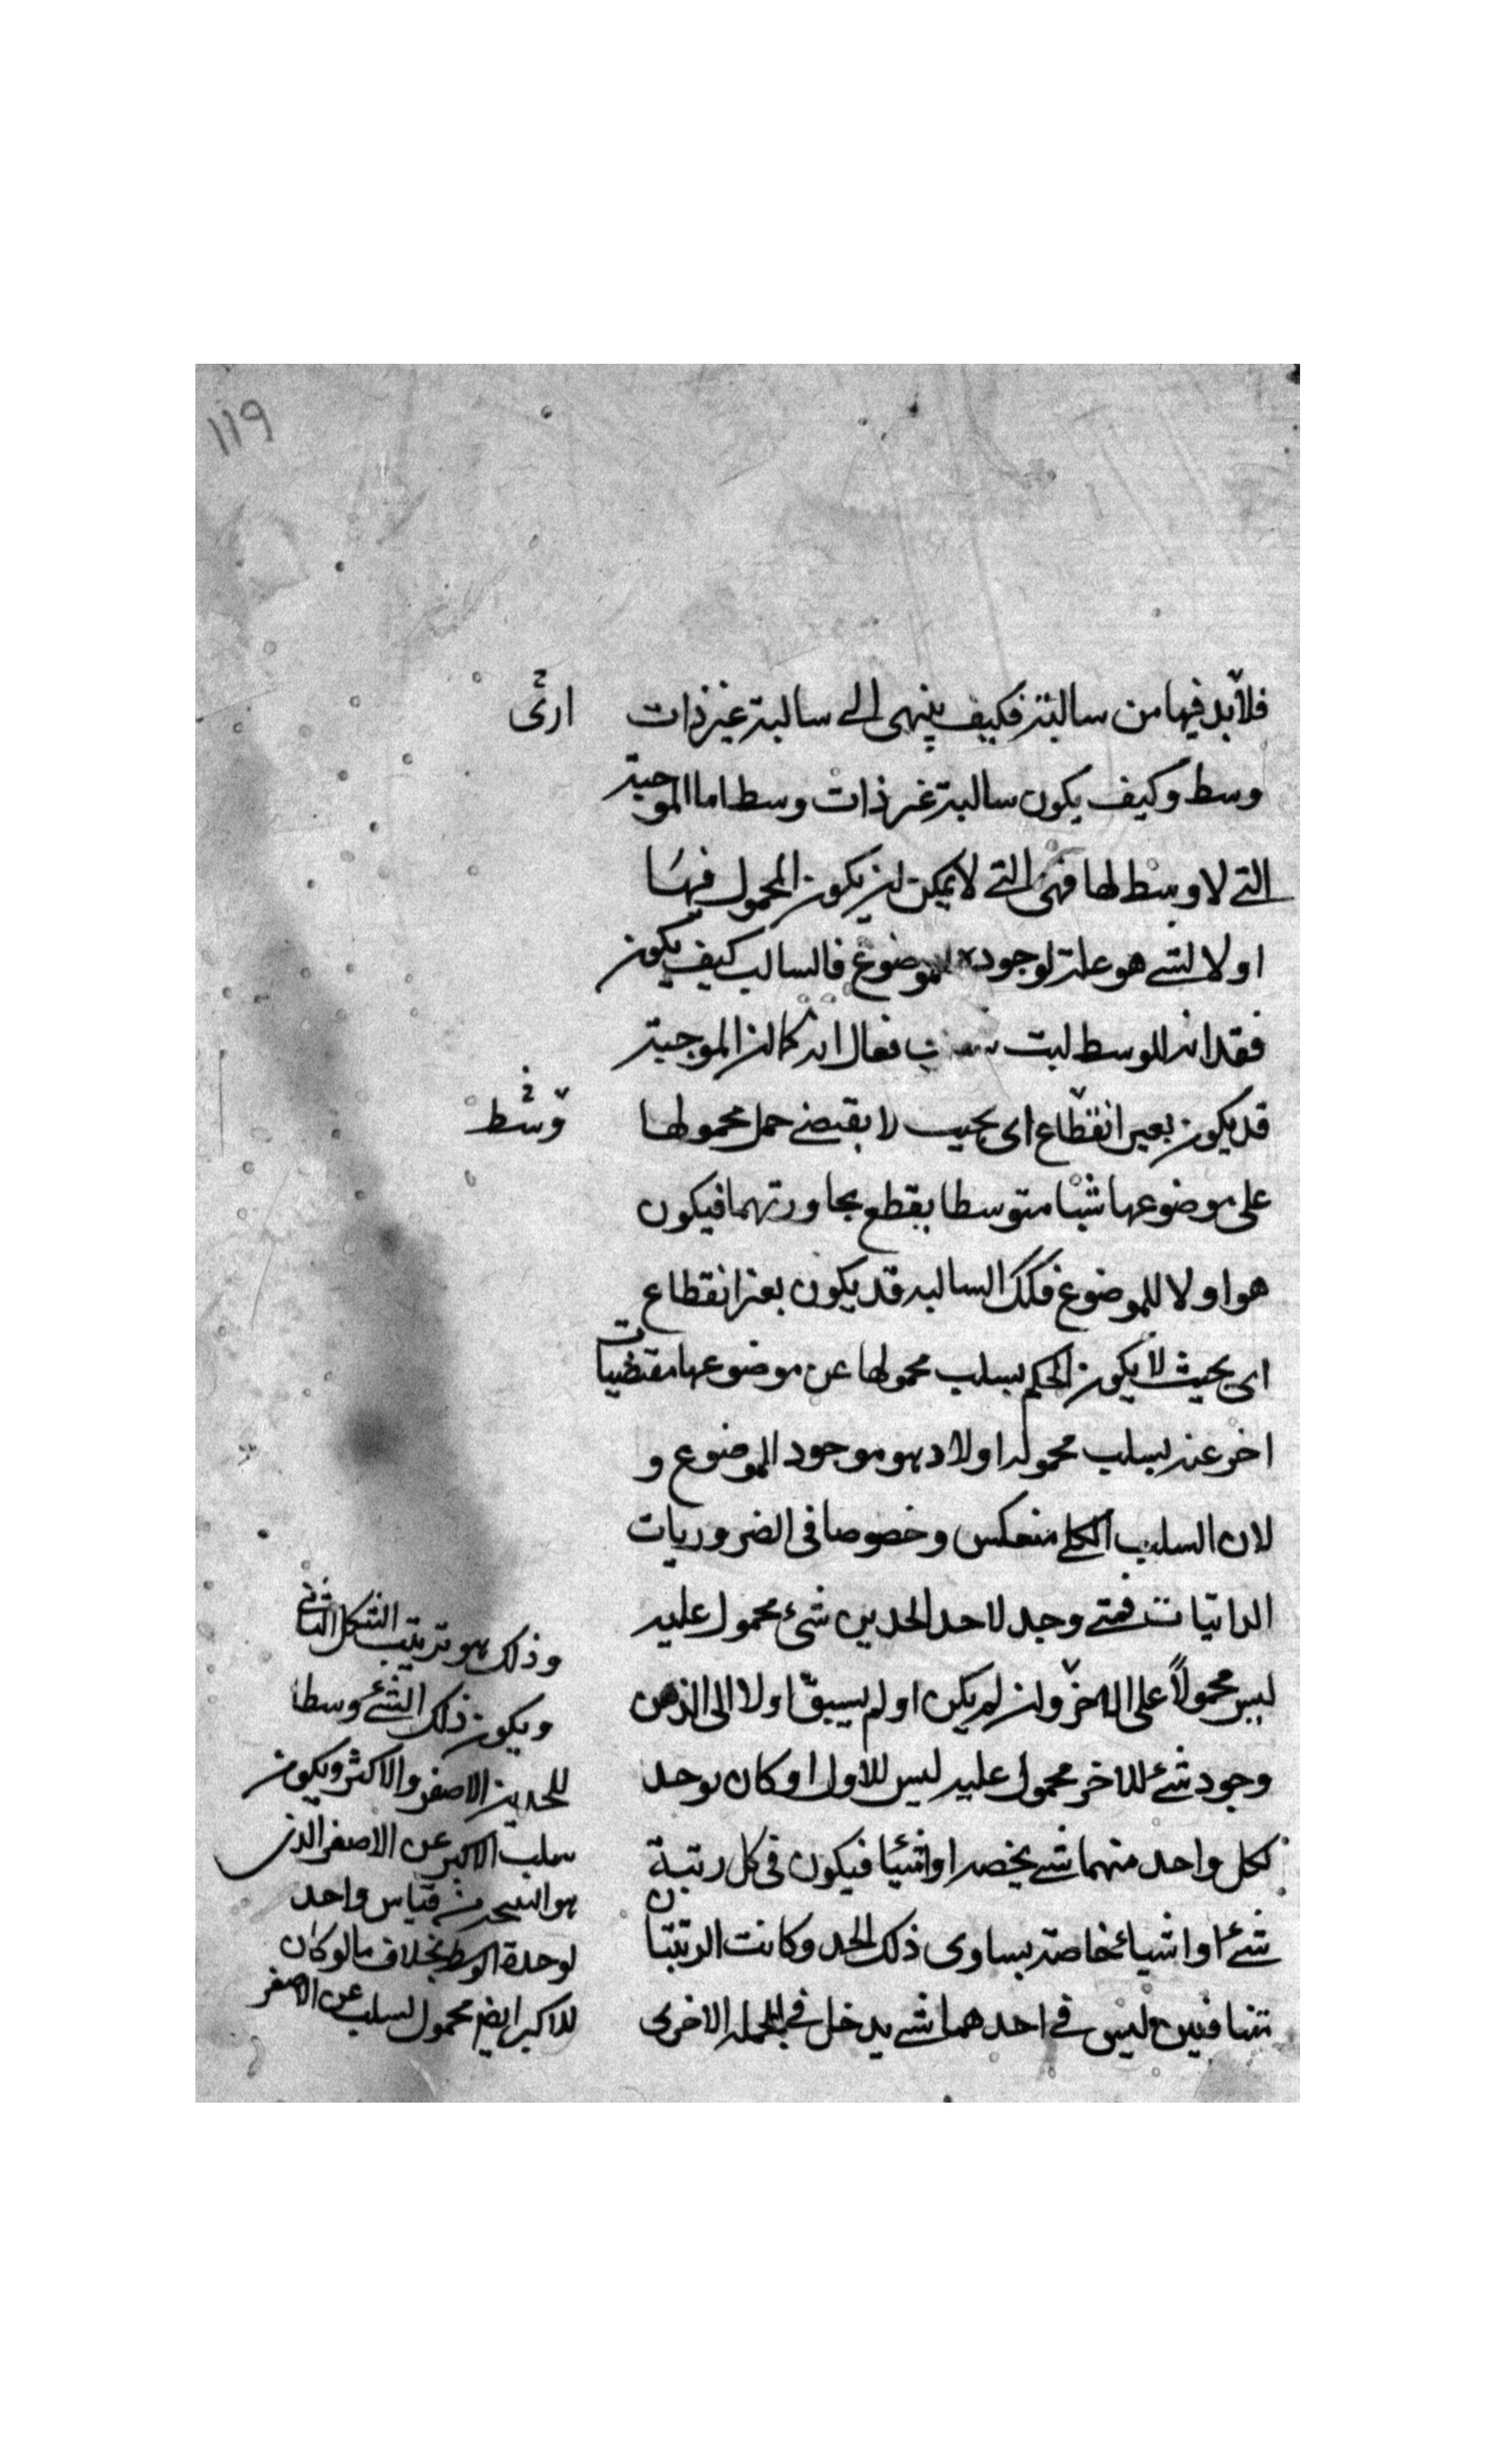 ١١٩
فلا بد فيها من سالبة فكيف ينتهى الى سالبة غير ذات
ارى
وسط وكيف يكون سالبة غير ذات وسط اما الموجبة
التى لا وسط لها فهى التى لا يمكن ان يكون المحمول فيها
اولا لشى هو علة لوجوده للموضوع فالسالب كيف يكون
فقدانه للوسط ليت فقال انه كما ان الموجبة
قد يكون بغير انقطاع اى بحيث لا يقتضى حمل محمولها
وسط
على موضوعها شيا متوسطا يقطع مجاورتهما فيكون
هو اولا للموضوع فكك السالبه قد يكون بغير انقطاع
اى بحيث لا يكون الحكم بسلب محمولها عن موضوعها مقتضيات
اخر عنه يسلب محموله اولا و هو موجود الموضوع و
لان السلب الكلى منعكس وخصوصا فى الضروريات
الداتيات فمتى وجد لاحد الحدين شئ محمول عليه
ليس محمولا على الاخر وان لم يكن او لم يسبق اولا الى الذهن
وجود شئ للاخر محمول عليه ليس للاول او كان يوجد
لكل واحد منهما شى يخصه او اشيا فيكون فى كل رتبة
شئ او اشياء خاصة يساوى ذلك الحد وكانت الرتبتان
تتنافيين وليس فى احدهما شى يدخل فى الجملة الاخرى
وذلك هو ترتيب الشكل الثانى
ويكون ذلك الشئ وسطا
للحدين الاصغر والاكبر ويكون
سلب الاكبر عن الاصغر الذى
هو النتيجة من قياس واحد
لوحدة الوسط بخلاف ما لو كان
للاكبر ايضم محمول لسلب عن الاصغر